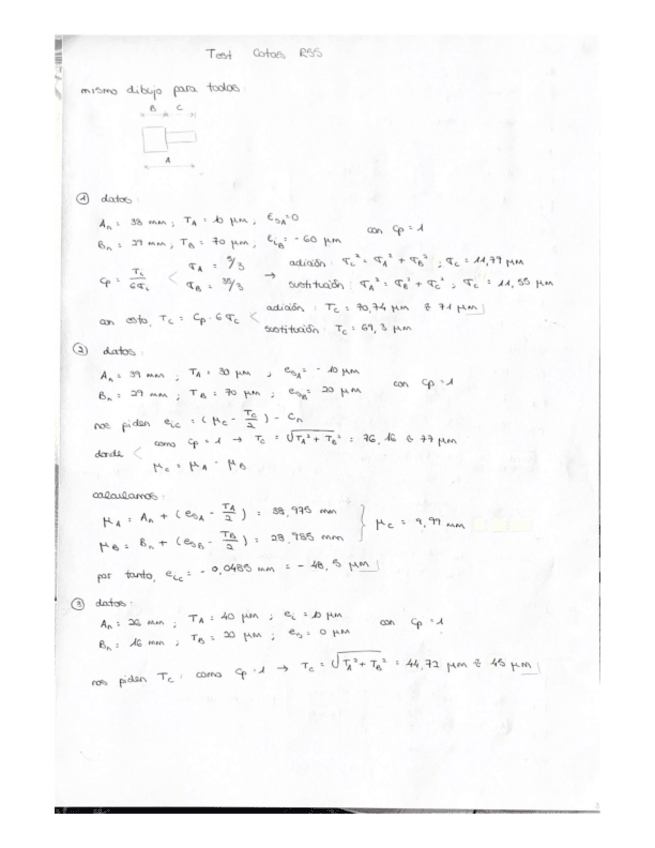 Test Cotas RSS
mismo dibujo para todos:
B C
A
① datos:
An = 38 mm ; TA = 10 μm ; esA = 0
Bn = 27 mm ; TB = 70 μm ; eiB = -60 μm
con Cp = 1
Cp = Tc/6σc < σA = 5/3 → adición: σc² = σA² + σB² ; σc = 11,79 μm
σB = 35/3 sustitución: σA² = σB² + σc² ; σc = 11,55 μm
con esto, Tc = Cp · 6σc < adición: Tc = 70,74 μm ≈ 71 μm
sustitución: Tc = 69,3 μm
② datos:
An = 39 mm ; TA = 30 μm ; esA = -10 μm
Bn = 29 mm ; TB = 70 μm ; esB = 20 μm
con Cp = 1
nos piden eic = (μc - Tc/2) - Cn
donde < como Cp = 1 → Tc = √TA² + TB² = 76,16 ≈ 77 μm
μc = μA - μB
calculamos:
μA = An + (esA - TA/2) = 38,975 mm
μB = Bn + (esB - TB/2) = 28,985 mm
} μc = 9,99 mm
por tanto, eic = -0,0485 mm = -48,5 μm
③ datos:
An = 26 mm ; TA = 40 μm ; ei = 10 μm
Bn = 16 mm ; TB = 20 μm ; es = 0 μm
con Cp = 1
nos piden Tc: como Cp = 1 → Tc = √TA² + TB² = 44,72 μm ≈ 45 μm